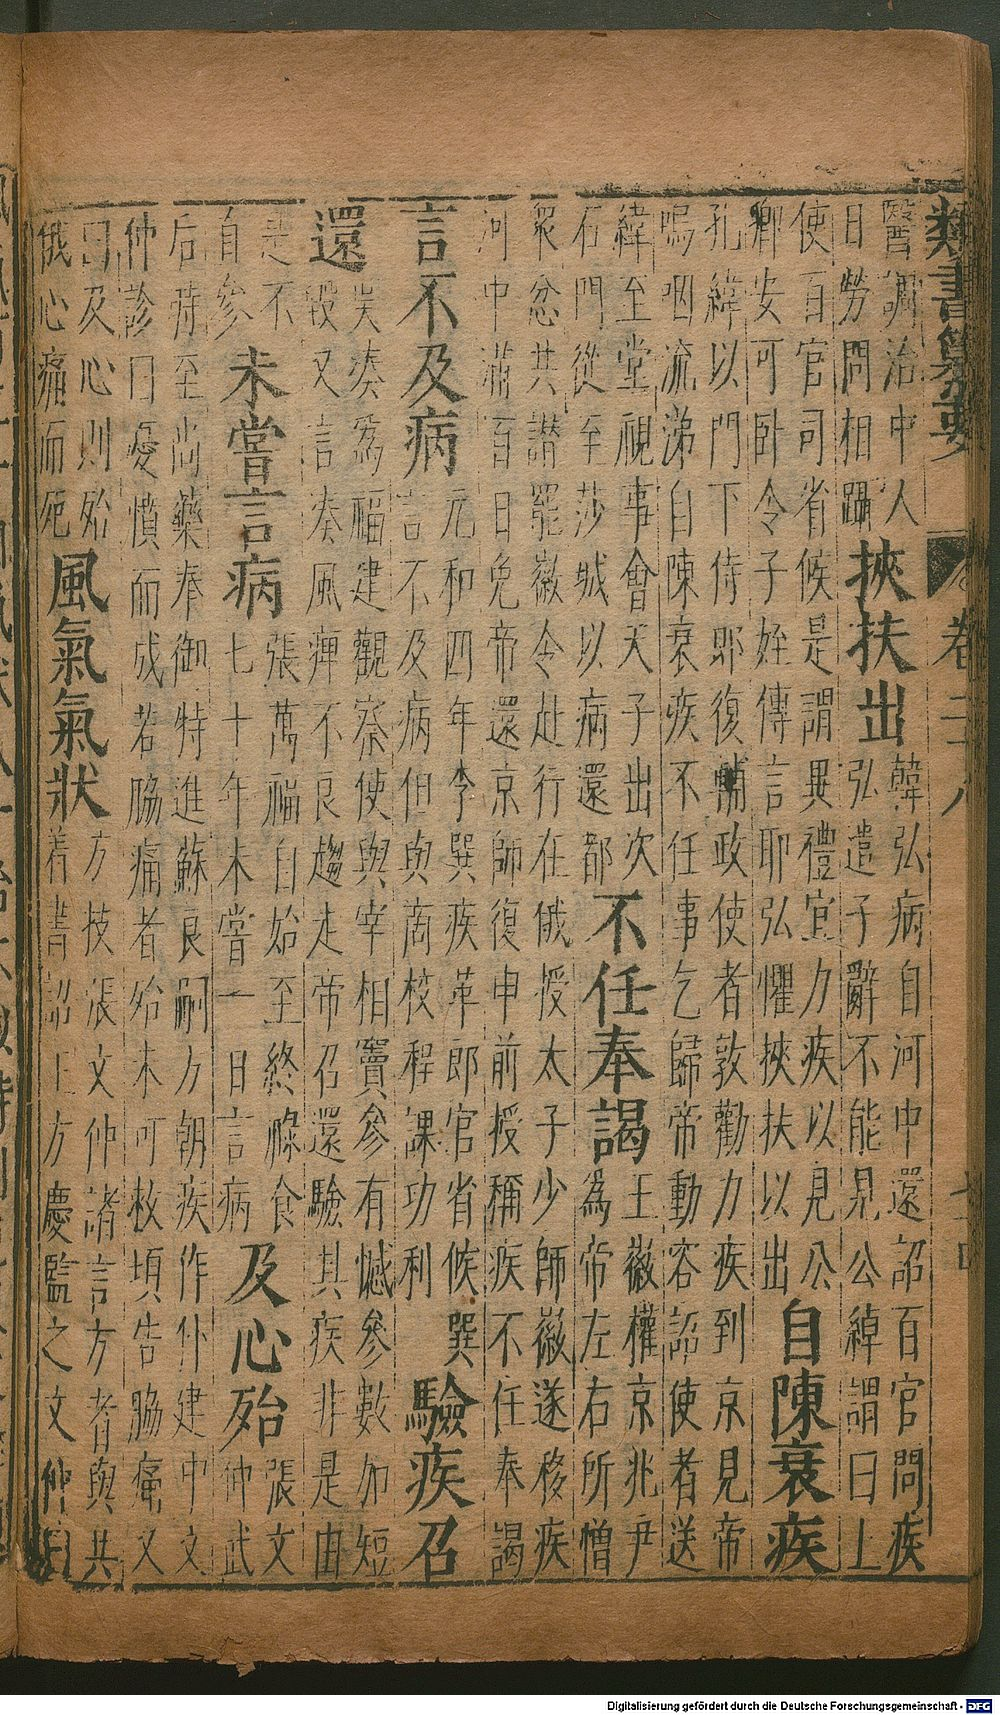 類書纂要 卷二十八
醫調治中人
日勞問相躡
挾扶出
韓弘病自河中還詔百官問疾
弘遣子辭不能見公綽謂曰上
使百官司省候是謂異禮宜力疾以見公
卿安可卧令子姪傳言耶弘懼挾扶以出
自陳衰疾
孔緯以門下侍郎復輔政使者敦勸力疾到京見帝
嗚咽流涕自陳衰疾不任事乞歸帝動容詔使者送
緯至堂視事會天子出次
石門從至莎城以病還都
不任奉謁
王徽權京兆尹
為帝左右所憎
衆忿共譖罷徽令赴行在俄授太子少師徽遂移疾
河中滿百日免帝還京師復申前授稱疾不任奉謁
言不及病
元和四年李巽疾革郎官省候巽
言不及病但與商校程課功利
驗疾召
還
吳湊為福建觀察使與宰相竇參有憾參數加短
毀又言湊風痺不良趨走帝召還驗其疾非是由
是不
自參
未嘗言病
張萬福自始至終祿食
七十年未嘗一日言病
及心殆
張文
仲武
后時至尚藥奉御特進蘇良嗣方朝疾作仆建中文
仲診曰憂憤而成若脇痛者殆未可救頃告脇痛又
曰及心則殆
俄心痛而死
風氣氣狀
方技張文仲諸言方者與共
著書詔上方慶監之文仲曰
Digitalisierung gefördert durch die Deutsche Forschungsgemeinschaft - DFG